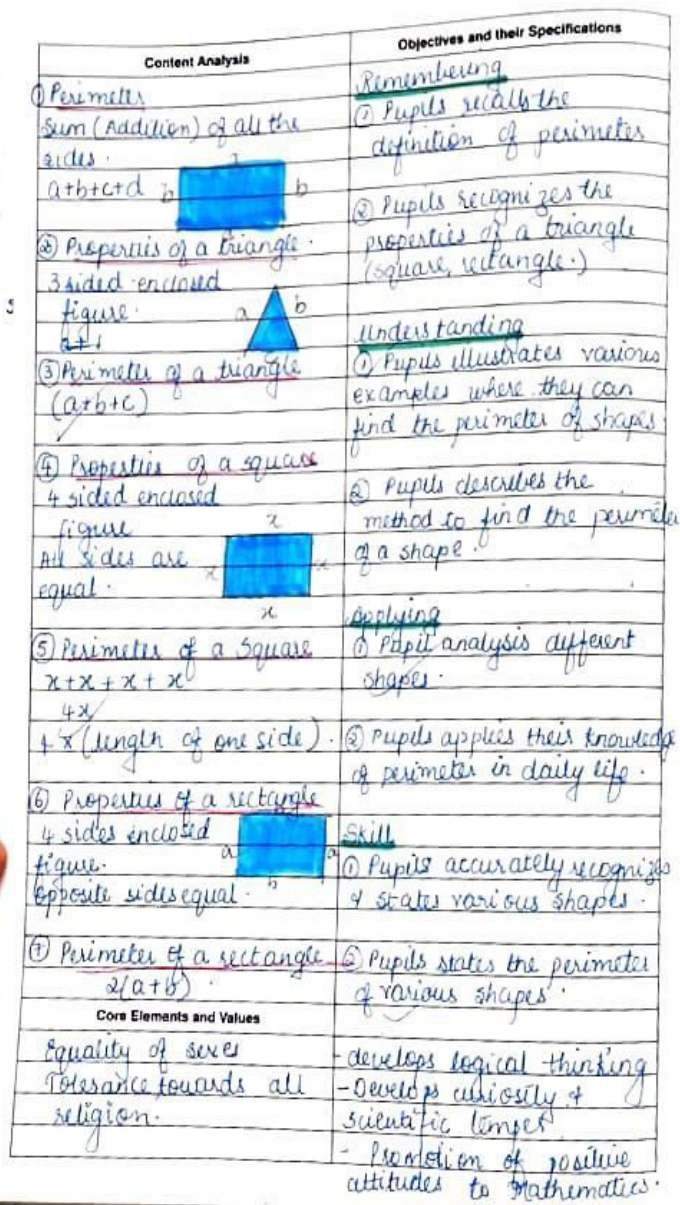 Content Analysis
① Perimeter
Sum (Addition) of all the
sides.
a+b+c+d
b
b
② Properties of a triangle.
3 sided enclosed
figure.
a
b
③ Perimeter of a triangle
(a+b+c)
④ Properties of a square
4 sided enclosed
figure
All sides are
equal.
x
x
x
x
⑤ Perimeter of a Square
x+x+x+x
4x
4 x (length of one side).
⑥ Properties of a rectangle
4 sides enclosed
figure.
opposite sides equal.
a
a
b
⑦ Perimeter of a rectangle
2(a+b).
Core Elements and Values
Equality of sexes
Tolerance towards all
religion.
Objectives and their Specifications
Remembering
① Pupils recalls the
definition of perimeter
② Pupils recognizes the
properties of a triangle
(square, rectangle.)
Understanding
① Pupils illustrates various
examples where they can
find the perimeter of shapes.
② Pupils describes the
method to find the perimeter
of a shape.
Applying
① Pupil analysis different
shapes.
② Pupils applies their knowledge
of perimeter in daily life.
Skill
① Pupils accurately recognizes
& states various shapes.
② Pupils states the perimeter
of various shapes.
- develops logical thinking
- Develops curiosity &
scientific temper
- Promotion of positive
attitudes to Mathematics.